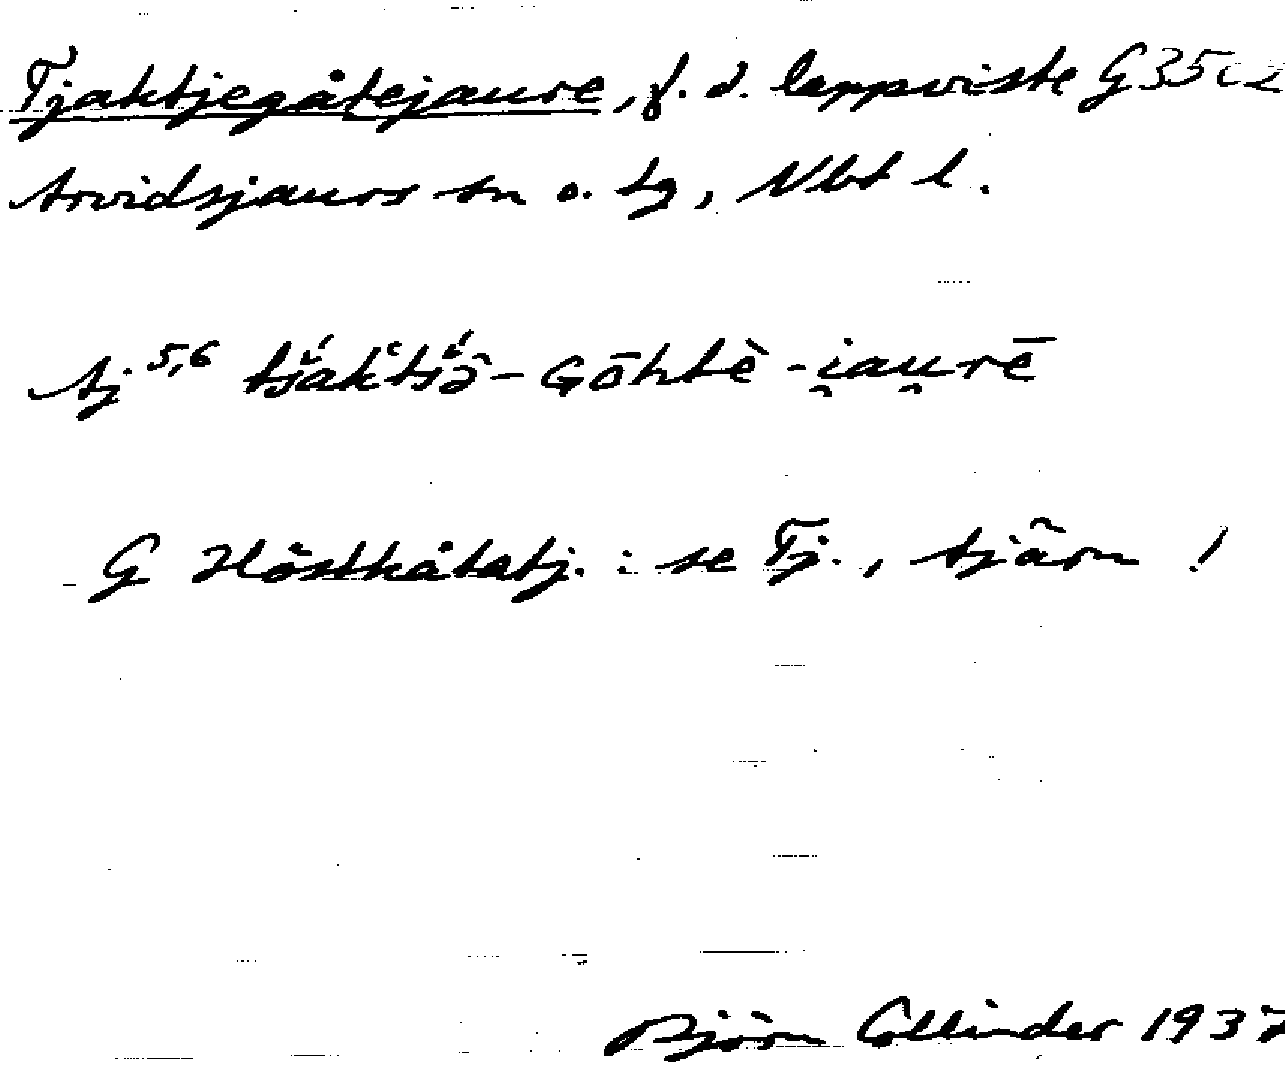 Tjaktjegåtejaure, f. d. lappviste G35c2
Arvidsjaurs sn o. tg, Nbt l.
Aj 5,6 -Gōhtè-i̯au̯rē
G Höstkåtatj. : se Tj., tjärn !
Björn Collinder 1937